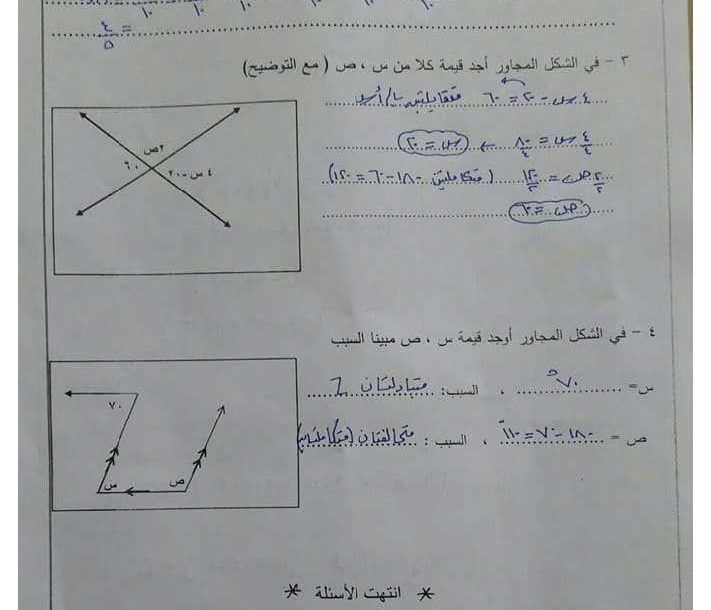 ١٠ ١٠ ١٠ ١٠ ١٠
= ٤/٥
٣ - في الشكل المجاور أجد قيمة كلا من س ، ص ( مع التوضيح )
٤ س - ٢٠ = ٦٠ متقابلتين بالرأس
٤ س / ٤ = ٨٠ / ٤ ← س = ٢٠
٢ ص / ٢ = ١٢٠ / ٢ ( متكاملتين ١٨٠ - ٦٠ = ١٢٠ )
ص = ٦٠
٢ص
٦٠
٤ س - ٢٠
٤ - في الشكل المجاور أوجد قيمة س ، ص مبينا السبب
س = ٧٠° ، السبب : متبادلتان
ص = ١٨٠ - ٧٠ = ١١٠ ، السبب : متحالفتان (متكاملتان)
٧٠
س
ص
* انتهت الأسئلة *